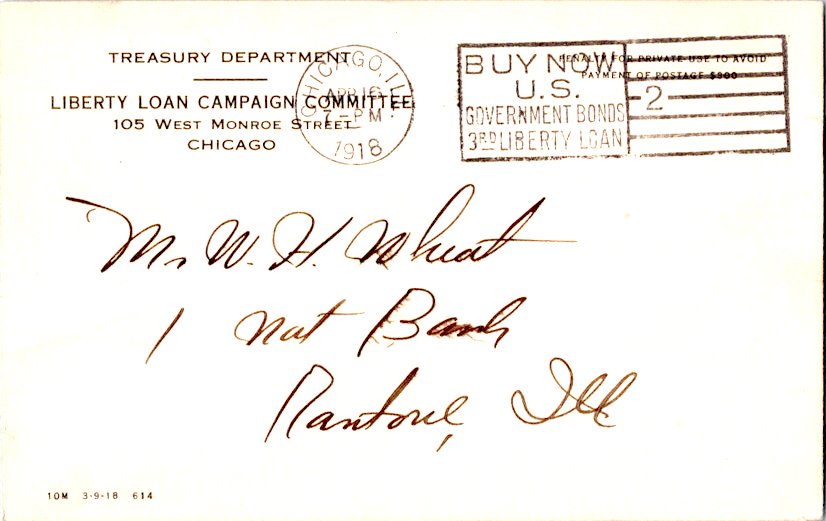 TREASURY DEPARTMENT
LIBERTY LOAN CAMPAIGN COMMITTEE
105 WEST MONROE STREET
CHICAGO
CHICAGO, ILL.
APR 16
7-PM
1918
BUY NOW
U.S.
GOVERNMENT BONDS
3RD LIBERTY LOAN
2
PENALTY FOR PRIVATE USE TO AVOID
PAYMENT OF POSTAGE $300
Mr W. H. Wheat
1 Nat Bank
Rantoul, Ill
10M 3-9-18 614